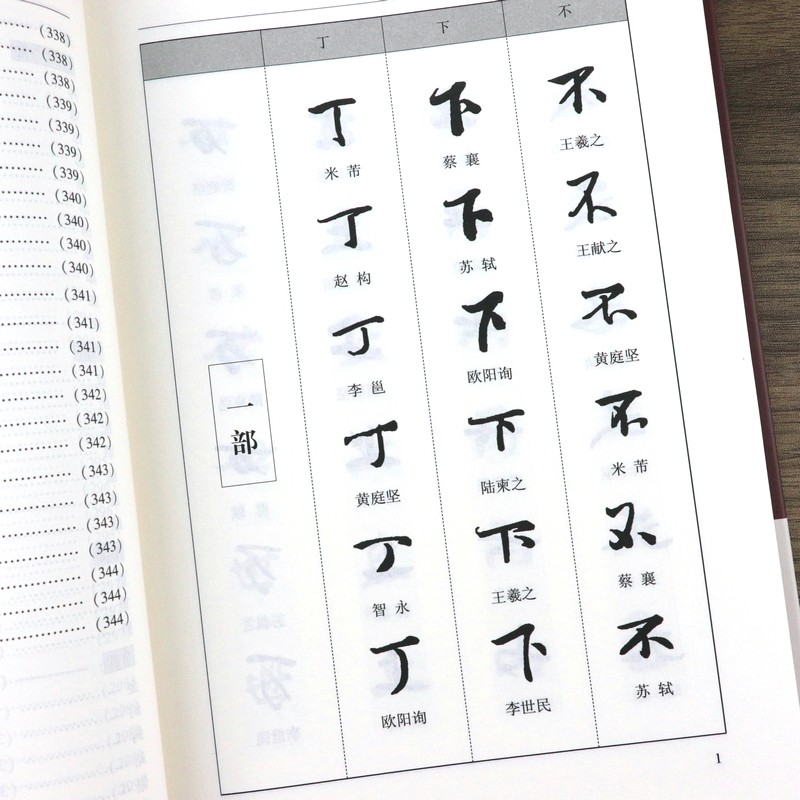 (338)
(338)
(338)
(339)
(339)
(339)
(339)
(340)
(340)
(340)
(340)
(341)
(341)
(341)
(341)
(342)
(342)
(342)
(343)
(343)
(343)
(343)
(344)
(344)
(344)
丁 下 不
一部
丁
米芾
丁
赵构
丁
李邕
丁
黄庭坚
丁
智永
丁
欧阳询
下
蔡襄
下
苏轼
下
欧阳询
下
陆柬之
下
王羲之
下
李世民
不
王羲之
不
王献之
不
黄庭坚
不
米芾
不
蔡襄
不
苏轼
1